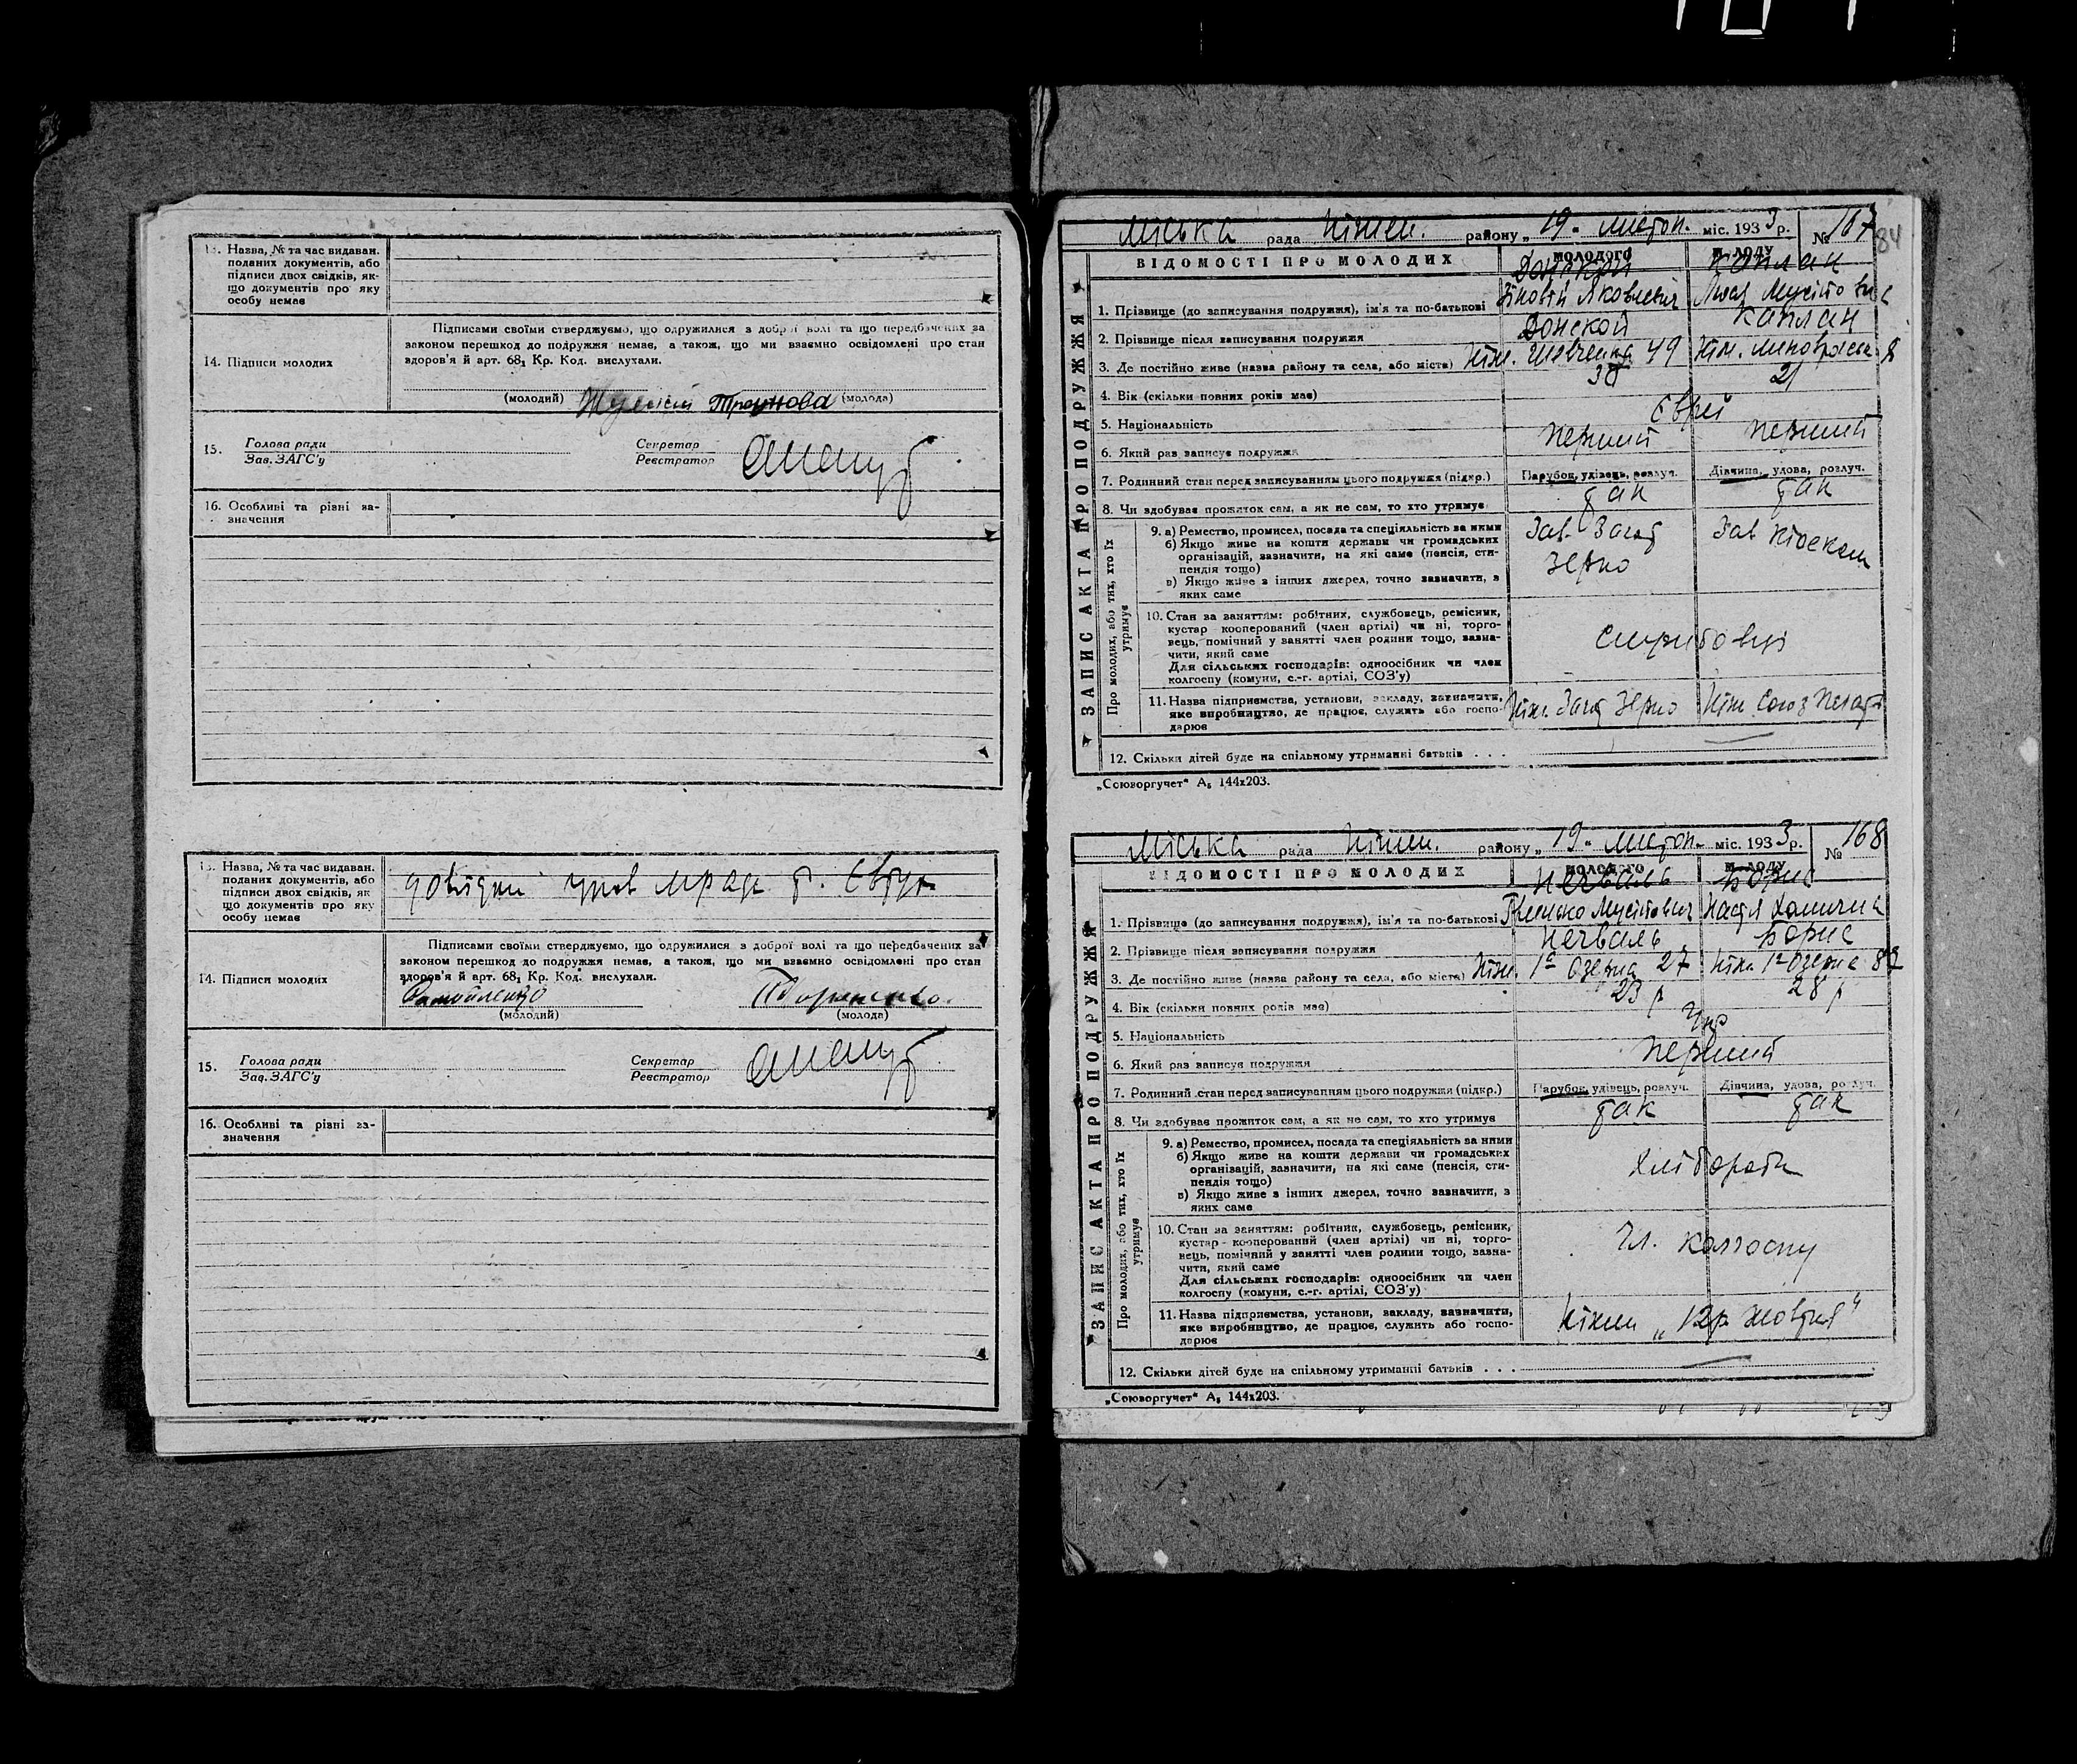 13. Назва, № та час видаван.
поданих документів, або
підписи двох свідків, як-
що документів про яку
особу немає
14. Підписи молодих
Підписами своїми стверджуємо, що одружилися з доброї волі та що передбачених за
законом перешкод до подружжя немає, а також, що ми взаємно освідомлені про стан
здоров'я й арт. 68, Кр. Код. вислухали.
(молодий) (молода)
15. Голова ради
Зав. ЗАГС'у
Секретар
Реєстратор
16. Особливі та різні за-
значення
13. Назва, № та час видаван.
поданих документів, або
підписи двох свідків, як
що документів про яку
особу немає
14. Підписи молодих
Підписами своїми стверджуємо, що одружилися з доброї волі та що передбачених за
законом перешкод до подружжя немає, а також, що ми взаємно освідомлені про стан
здоров'я й арт. 68, Кр. Код. вислухали.
(молодий) (молода)
15. Голова ради
Зав. ЗАГС'у
Секретар
Реєстратор
16. Особливі та різні за-
значення
Міська рада Ніжен. району „19" листоп. міс. 1933 р. № 167
84
ЗАПИС АКТА ПРО ПОДРУЖЖЯ
ВІДОМОСТІ ПРО МОЛОДИХ молодого молоду
Донской Каплан
1. Прізвище (до записування подружжя), ім'я та по-батькові Зіновій Яковлевич
2. Прізвище після записування подружжя Донской Каплан
3. Де постійно живе (назва району та села, або міста) Ніж. Шевченка 49 Ніж.
4. Вік (скільки повних років має) 21
5. Національність Євреї
6. Який раз записує подружжя перший перший
7. Родинний стан перед записуванням цього подружжя (підкр.) Парубок, удівець, розлуч. Дівчина, удова, розлуч.
8. Чи здобуває прожиток сам, а як не сам, то хто утримує так так
Про молодих, або тих, хто їх утримує
9. а) Ремество, промисел, посада та спеціяльність за ними
б) Якщо живе на кошти держави чи громадських
організацій, зазначити, на які саме (пенсія, сти-
пендія тощо)
в) Якщо живе з інших джерел, точно зазначити, з
яких саме
Зав. Загот
зерно
Зав кіоском
10. Стан за заняттям: робітник, службовець, ремісник,
кустар кооперований (член артілі) чи ні, торго-
вець, помічний у занятті член родини тощо, зазна-
чити, який саме
Для сільських господарів: одноосібник чи член
колгоспу (комуни, с.-г. артілі, СОЗ'у)
службовці
11. Назва підприємства, установи, закладу, зазначити,
яке виробництво, де працює, служить або госпо-
дарює
Ніж. Загот Зерно Ніж Союз Печать
12. Скільки дітей буде на спільному утриманні батьків . . .
„Союзоргучет" А5 144х203.
Міська рада Ніжен. району „19" листоп. міс. 1933 р. № 168
ЗАПИС АКТА ПРО ПОДРУЖЖЯ
ВІДОМОСТІ ПРО МОЛОДИХ молодого молоду
Печваль Борис
1. Прізвище (до записування подружжя), ім'я та по-батькові Настя
2. Прізвище після записування подружжя Печваль Борис
3. Де постійно живе (назва району та села, або міста) Ніж. 1а Озерна 27 Ніж. 1а Озерна
4. Вік (скільки повних років має) 23 р 28 р
5. Національність Укр
6. Який раз записує подружжя перший
7. Родинний стан перед записуванням цього подружжя (підкр.) Парубок, удівець, розлуч. Дівчина, удова, розлуч.
8. Чи здобуває прожиток сам, а як не сам, то хто утримує так так
Про молодих, або тих, хто їх утримує
9. а) Ремество, промисел, посада та спеціяльність за ними
б) Якщо живе на кошти держави чи громадських
організацій, зазначити, на які саме (пенсія, сти-
пендія тощо)
в) Якщо живе з інших джерел, точно зазначити, з
яких саме
Хлібороби
10. Стан за заняттям: робітник, службовець, ремісник,
кустар - кооперований (член артілі) чи ні, торго-
вець, помічний у занятті член родини тощо, зазна-
чити, який саме
Для сільських господарів: одноосібник чи член
колгоспу (комуни, с.-г. артілі, СОЗ'у)
Чл. колгоспу
11. Назва підприємства, установи, закладу, зазначити,
яке виробництво, де працює, служить або госпо-
дарює
Ніжен „12 р. жовтня"
12. Скільки дітей буде на спільному утриманні батьків . . .
„Союзоргучет" А5 144х203.